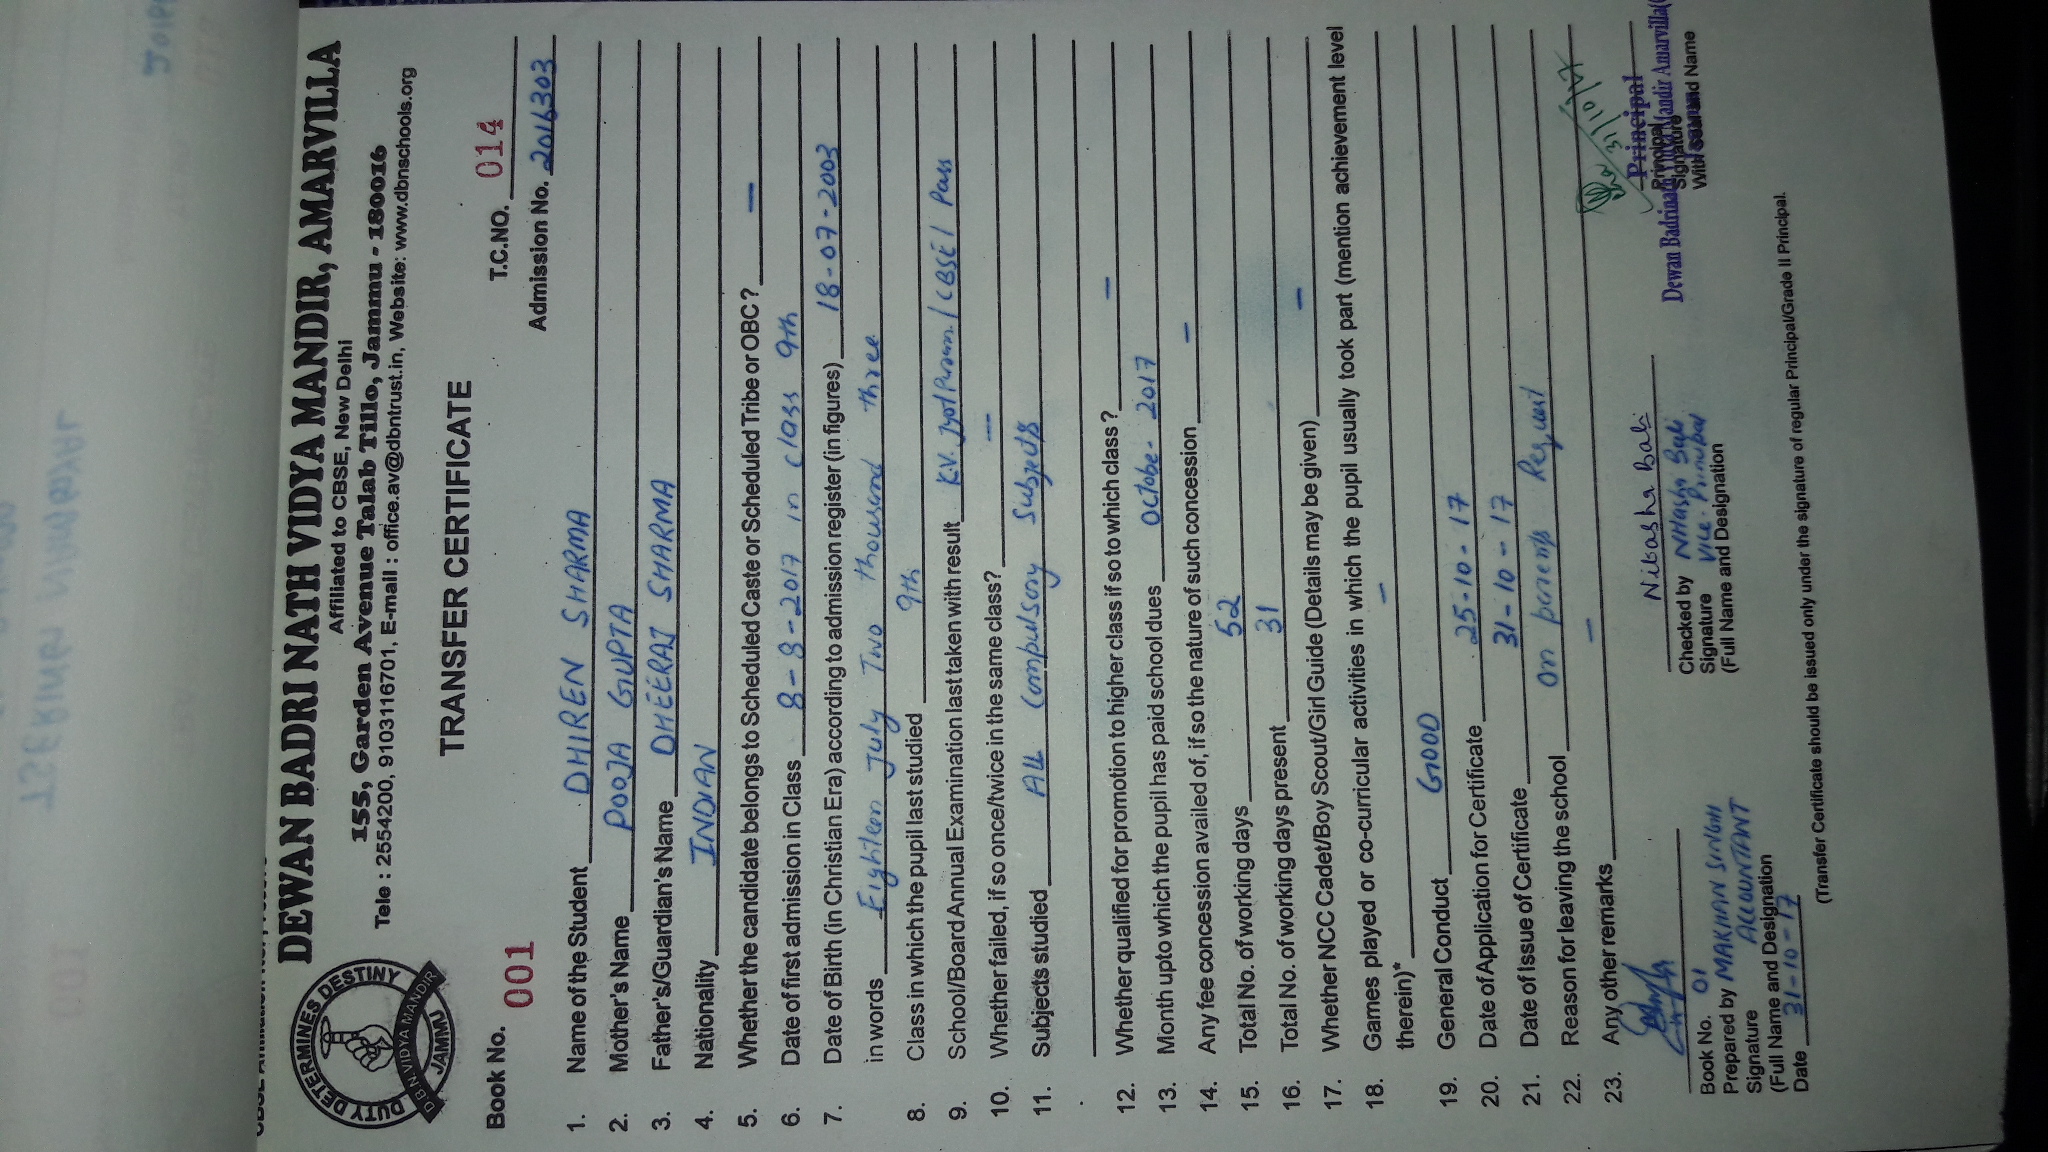 DEWAN BADRI NATH VIDYA MANDIR, AMARVILLA
Affiliated to CBSE, New Delhi
155, Garden Avenue Talab Tillo, Jammu - 180016
Tele : 2554200, 9103116701, E-mail : office.av@dbntrust.in, Website: www.dbnschools.org
DUTY DETERMINES DESTINY
D.B.N. VIDYA MANDIR
JAMMU
TRANSFER CERTIFICATE
Book No. 001 T.C.NO. 014
Admission No. 2016303
1. Name of the Student DHIREN SHARMA
2. Mother's Name POOJA GUPTA
3. Father's/Guardian's Name DHEERAJ SHARMA
4. Nationality INDIAN
5. Whether the candidate belongs to Scheduled Caste or Scheduled Tribe or OBC? —
6. Date of first admission in Class 8-8-2017 in class 9th
7. Date of Birth (in Christian Era) according to admission register (in figures) 18-07-2003
in words Eighteen July Two thousand three
8. Class in which the pupil last studied 9th
9. School/Board Annual Examination last taken with result K.V. / CBSE / Pass
10. Whether failed, if so once/twice in the same class? —
11. Subjects studied All Compulsory Subjects
12. Whether qualified for promotion to higher class if so to which class ? —
13. Month upto which the pupil has paid school dues Octobe- 2017
14. Any fee concession availed of, if so the nature of such concession —
15. Total No. of working days 52
16. Total No. of working days present 31
17. Whether NCC Cadet/Boy Scout/Girl Guide (Details may be given) —
18. Games played or co-curricular activities in which the pupil usually took part (mention achievement level
therein)* —
19. General Conduct GOOD
20. Date of Application for Certificate 25-10-17
21. Date of Issue of Certificate 31-10-17
22. Reason for leaving the school On Request
23. Any other remarks —
Nitasha Bali
31/10/17
Principal
Dewan Badrinath Vidya Mandir Amarvilla
Book No. 01
Prepared by MAKHAN SINGH
Signature ACCOUNTANT
(Full Name and Designation
Date 31-10-17
Checked by Nitasha Bali
Signature Vice-Principal
(Full Name and Designation
Principal
Signature
With seal and Name
(Transfer Certificate should be issued only under the signature of regular Principal/Grade II Principal.